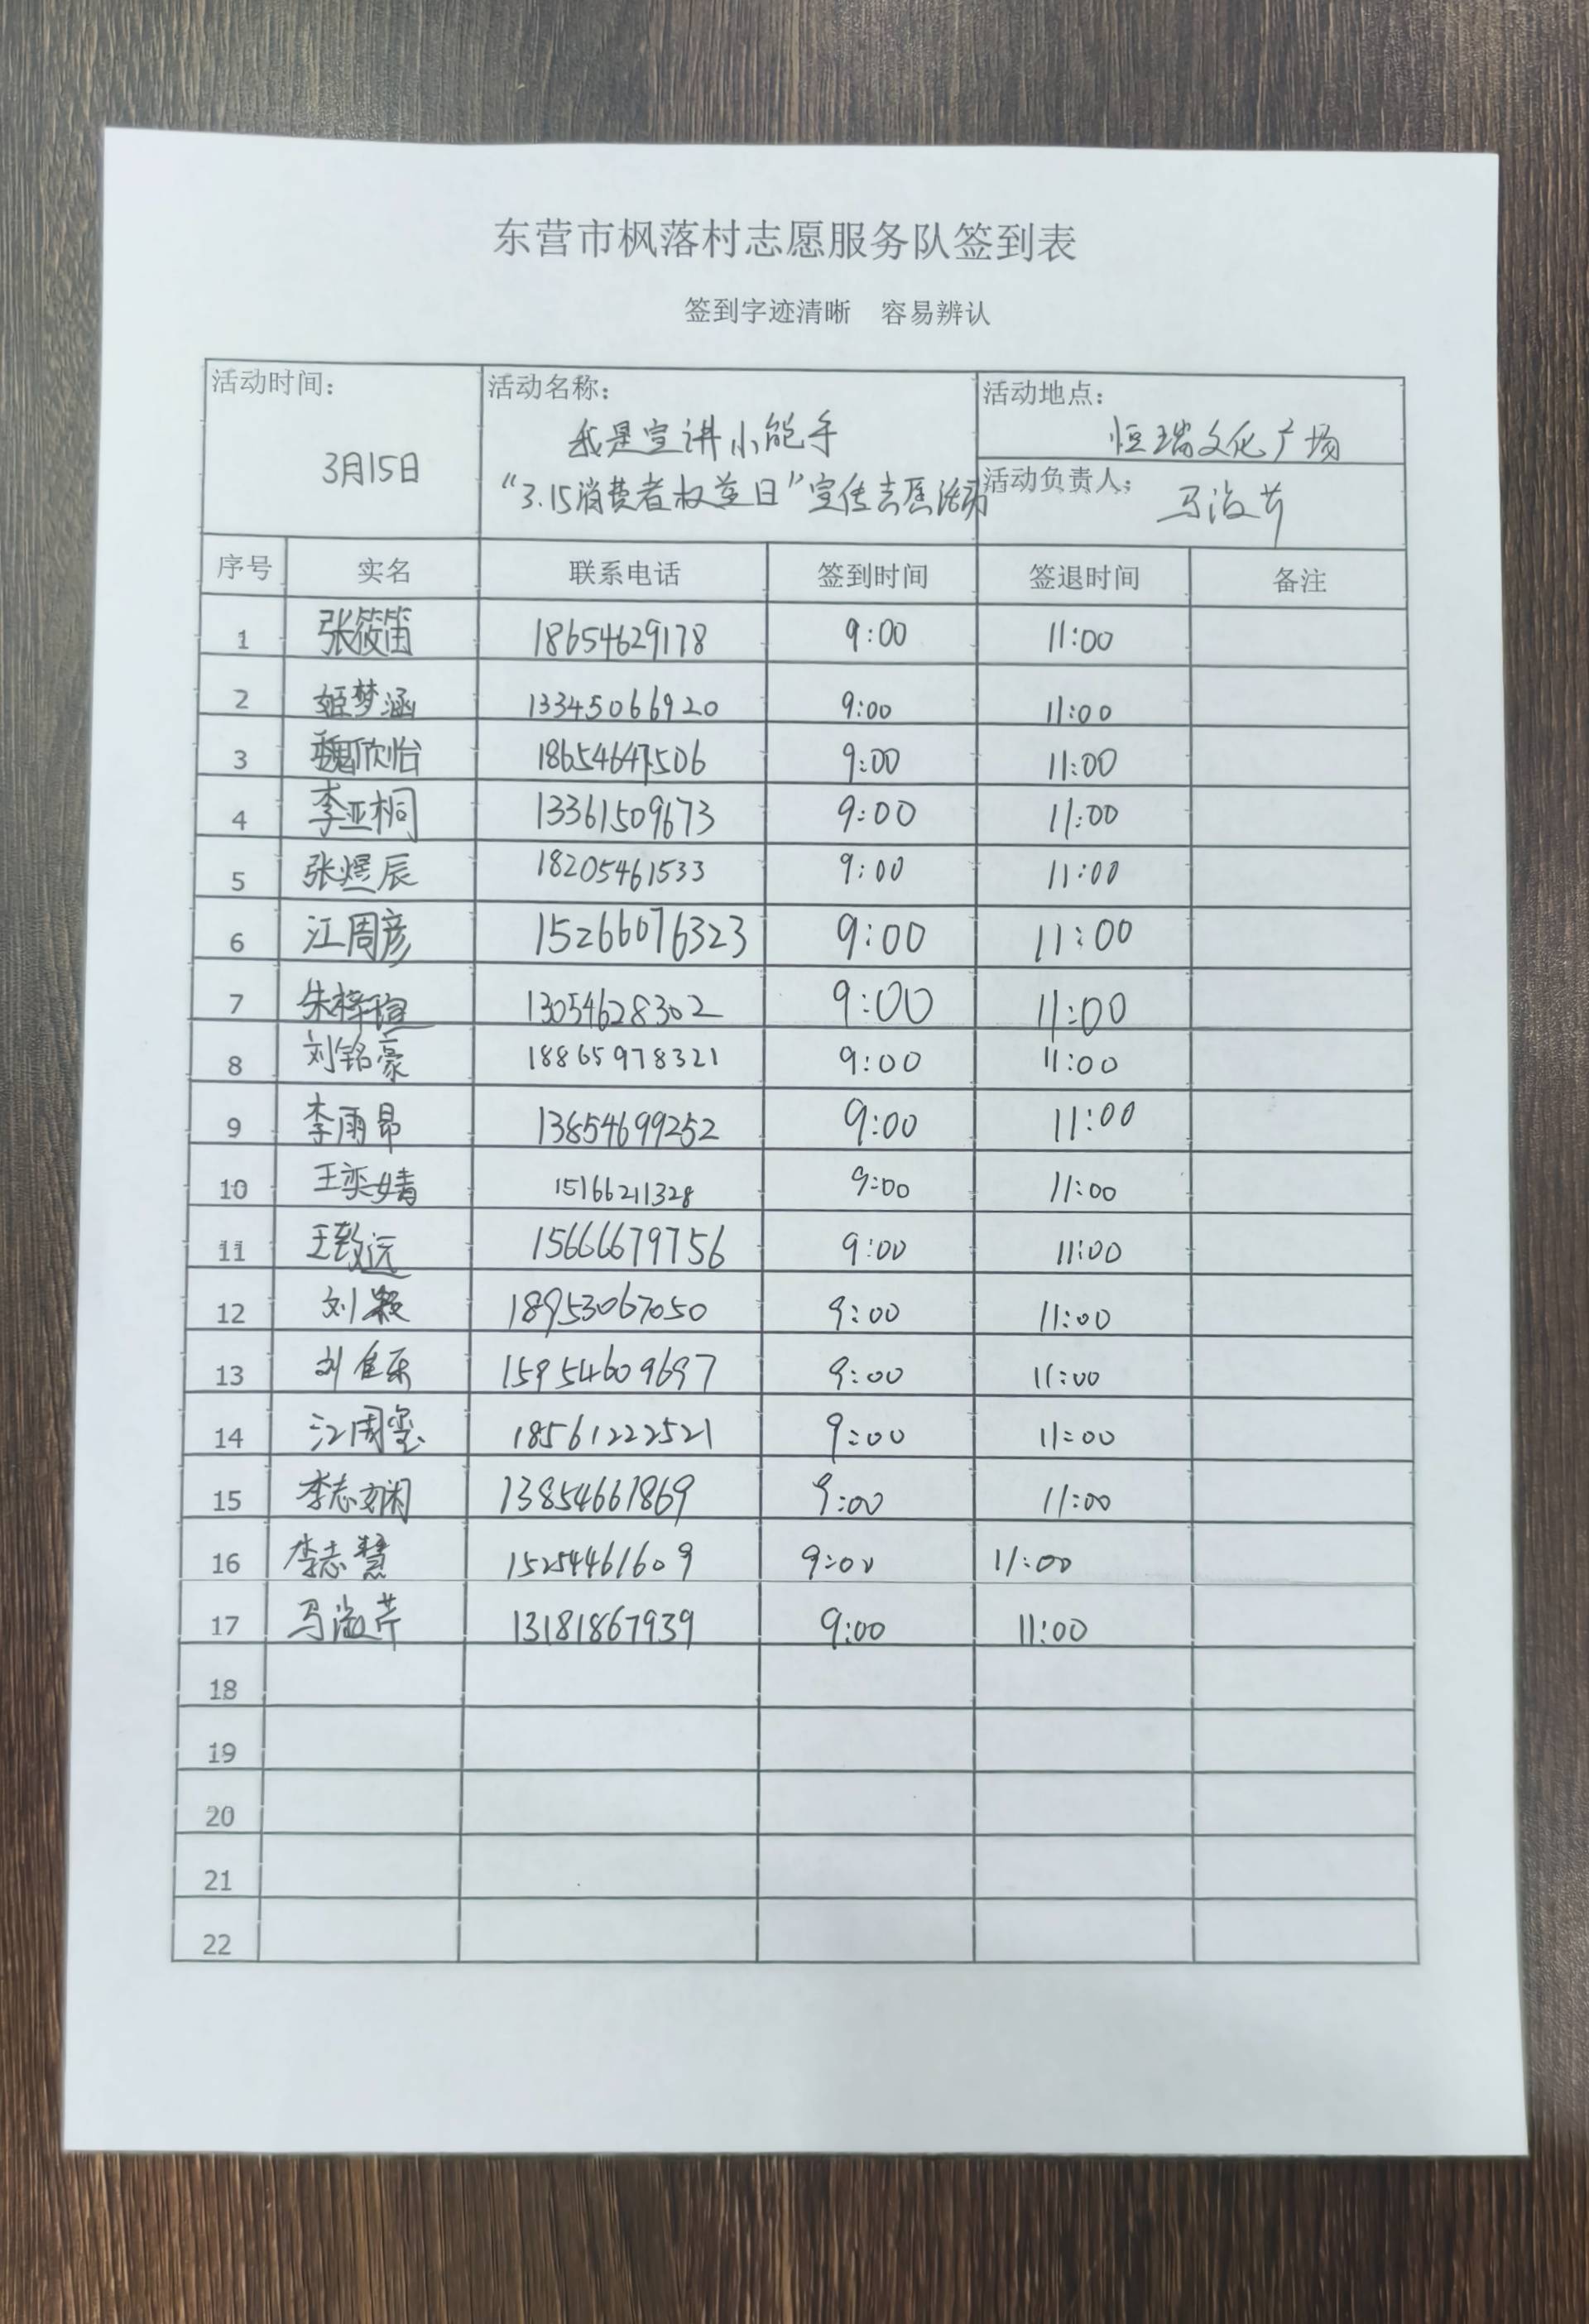 东营市枫落村志愿服务队签到表
签到字迹清晰 容易辨认
活动时间： 活动名称： 活动地点：
我是宣讲小能手 恒瑞文化广场
3月15日 “3.15消费者权益日”宣传志愿活动 活动负责人： 马淑芹
序号 实名 联系电话 签到时间 签退时间 备注
1 张筱笛 18654629178 9:00 11:00
2 姬梦涵 13345066920 9:00 11:00
3 魏欣怡 18654647506 9:00 11:00
4 李亚桐 13361509673 9:00 11:00
5 张煜辰 18205461533 9:00 11:00
6 江周彦 15266076323 9:00 11:00
7 朱梓瑄 13054628302 9:00 11:00
8 刘铭豪 18865978321 9:00 11:00
9 李雨昂 13854699252 9:00 11:00
10 王奕婧 15166211328 9:00 11:00
11 王致远 15666679756 9:00 11:00
12 刘颖 18953067050 9:00 11:00
13 刘佳乐 15954609697 9:00 11:00
14 江周玺 18561222521 9:00 11:00
15 李志娴 13854661869 9:00 11:00
16 李志慧 15254461609 9:00 11:00
17 马淑芹 13181867939 9:00 11:00
18
19
20
21
22